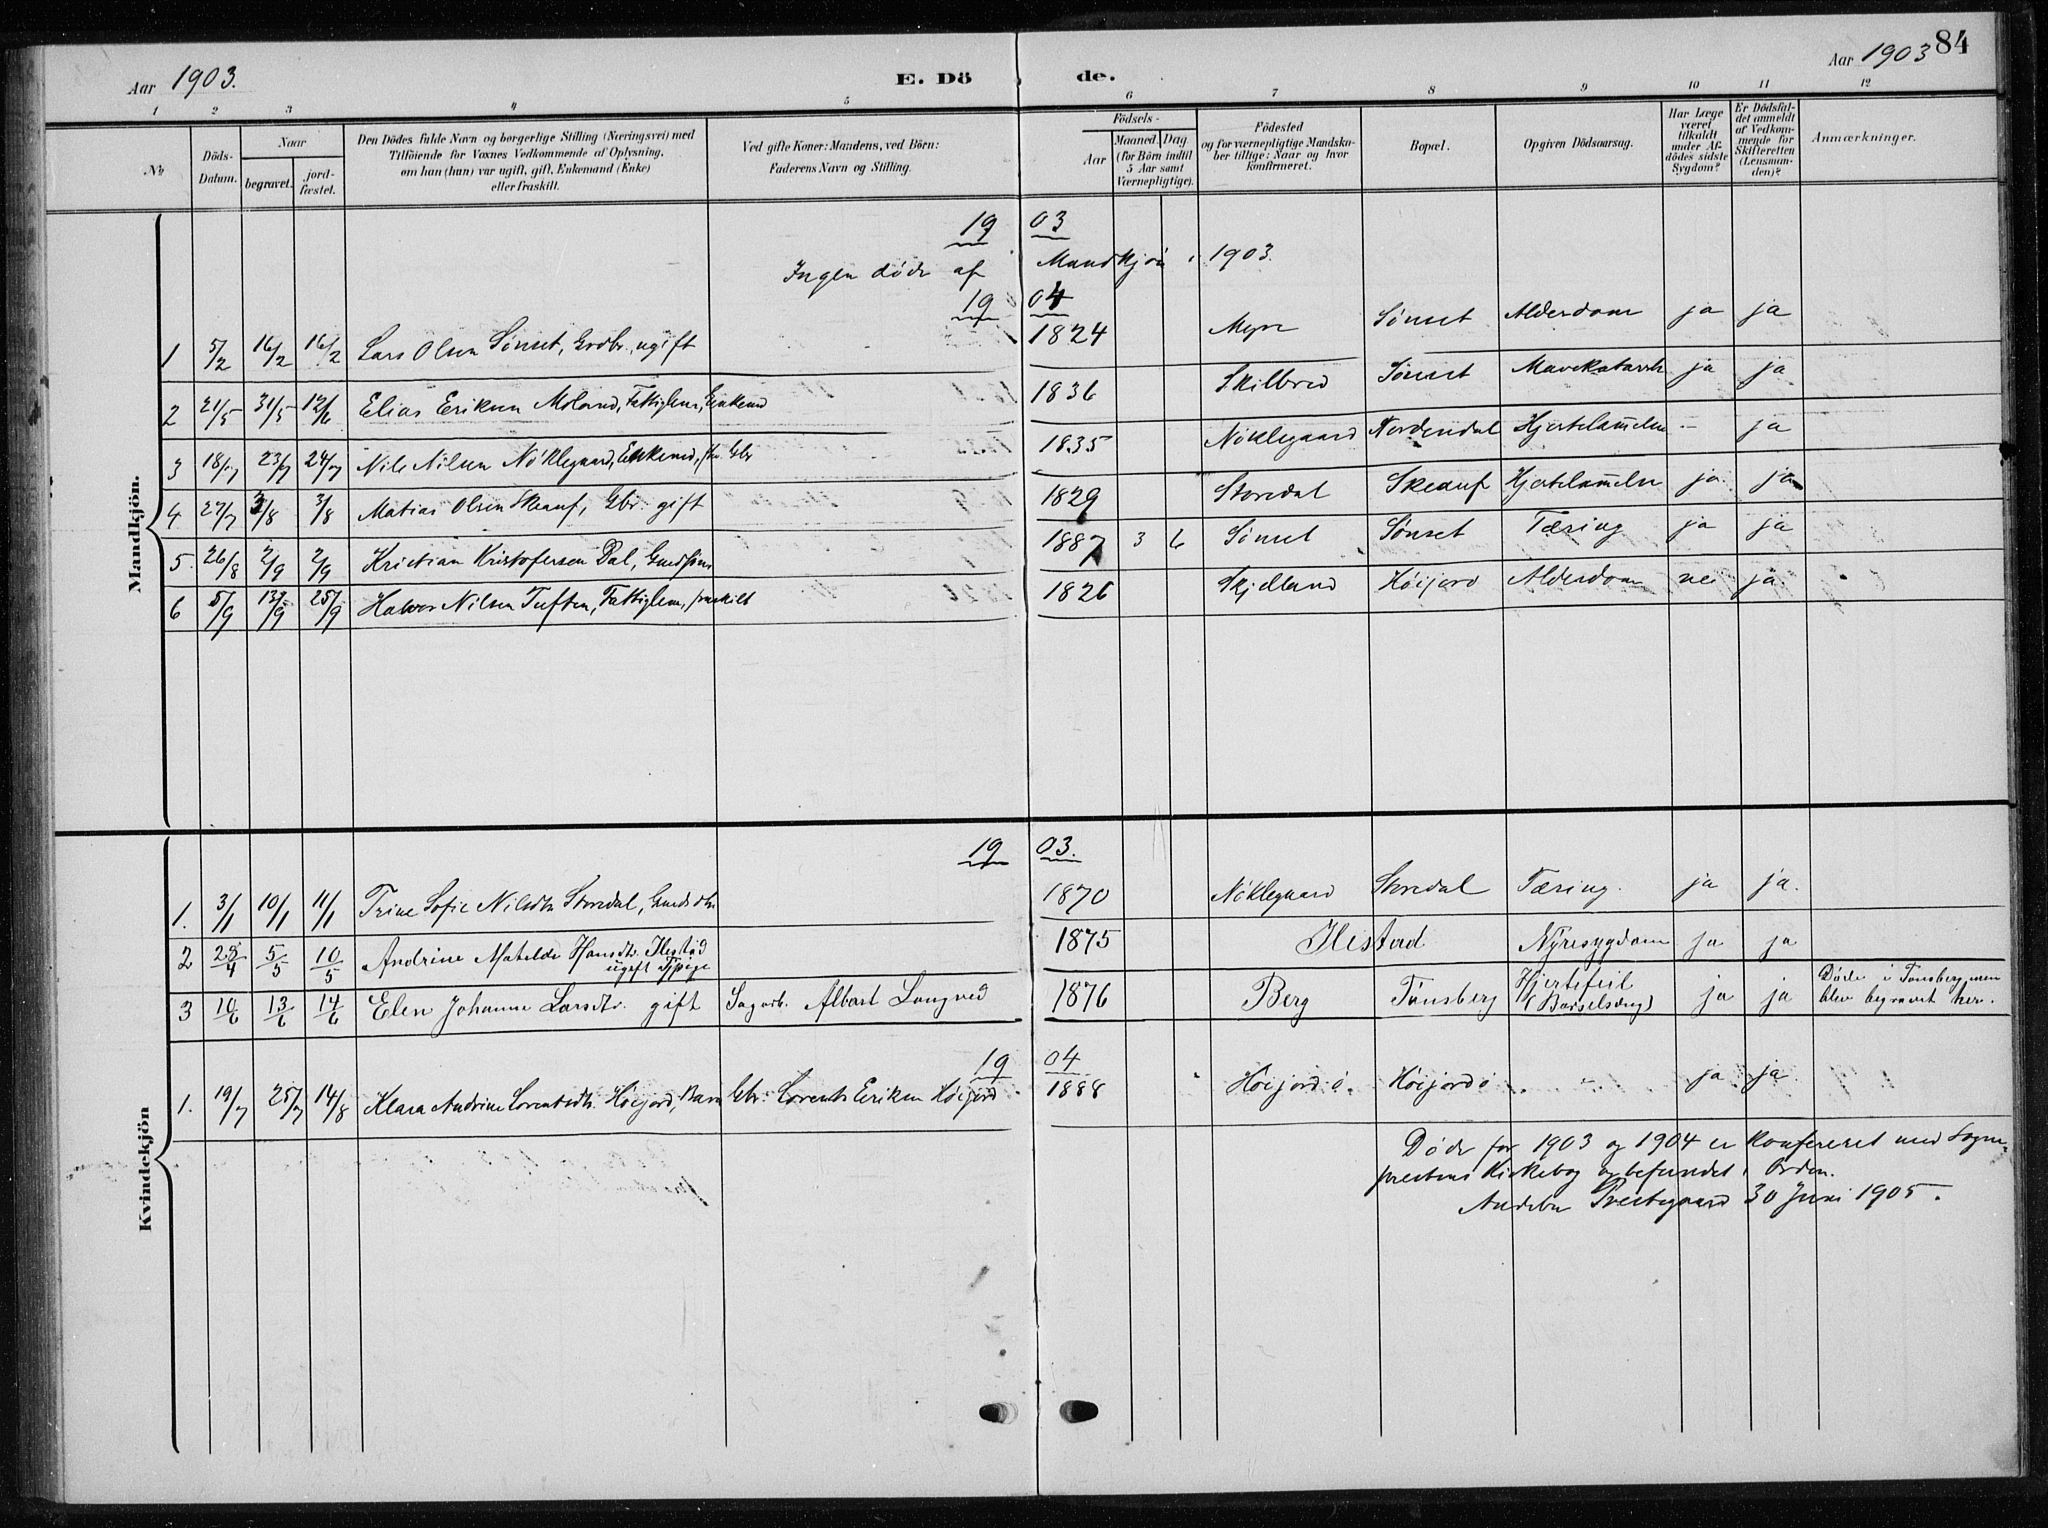 84
Aar 1903.
E. Döde.
Aar 1903
1 2 3 4 5 6 7 8 9 10 11 12
No
Döds-Datum.
Naar
begravet.
jordfæstet.
Den Dödes fulde Navn og borgerlige Stilling (Næringsvei) med
Tilföiende for Voxnes Vedkommende af Oplysning,
om han (hun) var ugift, gift, Enkemand (Enke)
eller fraskilt.
Ved gifte Koner: Mandens, ved Börn:
Faderens Navn og Stilling.
Födsels-
Aar
Maaned. Dag.
(for Börn indtil
5 Aar samt
Værnepligtige).
Födested
og for værnepligtige Mandskaber tillige: Naar og hvor
konfirmeret.
Bopæl.
Opgiven Dödsaarsag.
Har Læge
været
tilkaldt
under Afdödes sidste
Sygdom?
Er Dödsfaldet anmeldt
af Vedkommende for
Skifteretten
(Lensmanden)?
Anmærkninger.
Mandkjön.
1903
Ingen døde af Mandkjøn i 1903.
1904
1 5/2 16/2 16/2 Lars Olsen Sønset, Grdbr., ugift 1824 Myre Sønset Alderdom ja ja
2 21/5 31/5 12/6 Elias Eriksen Moland, Fattiglem, Enkemd 1836 Skilbred Sønset Mavekatarrh ja ja
3 18/7 23/7 24/7 Nils Nilsen Nöklegaard, Enkemd, Gbr 1835 Nøklegaard Nordendal Hjertelammelse - ja
4 27/7 3/8 3/8 Matias Olsen Skeauf, Gbr. gift 1829 Storedal Skeauf Hjertelammelse ja ja
5. 26/8 2/9 2/9 Kristian Kristofersen Dal, Gmdssøn 1887 3 6 Sønset Sønset Tæring ja ja
6 5/9 13/9 25/9 Halvor Nilsen Tuften, Fattiglem, fraskilt 1826 Skjelland Høijord Alderdom nei ja
Kvindekjön
1903.
1. 3/1 10/1 11/1 Trine Sofie Nilsdtr Storedal, Gmdsdtr 1870 Nøklegaard Storedal Tæring. ja ja.
2 28/4 5/5 10/5 Andrine Matelde Hansdtr. Ilestad
ugift Tjpige 1875 Ilestad Nyresygdom ja ja
3 10/6 13/6 14/6 Elen Johanne Larsdtr. gift Sagarb. Albart Langved 1876 Berg Tønsberg Hjertefeil
(Barselseng) ja ja Døde i Tønsberg men
blev begravet her.
1904
1. 19/7 25/7 14/8 Klara Andrine Lorentsdtr. Høijord, Barn Gbr. Lorents Eriksen Høijord 1888 Høijord ø. Høijord ø ja ja
Døde for 1903 og 1904 er konfereret med Sogneprestens Kirkebog og befundet i Orden.
Andebu Prestegaard 30 Juni 1905.